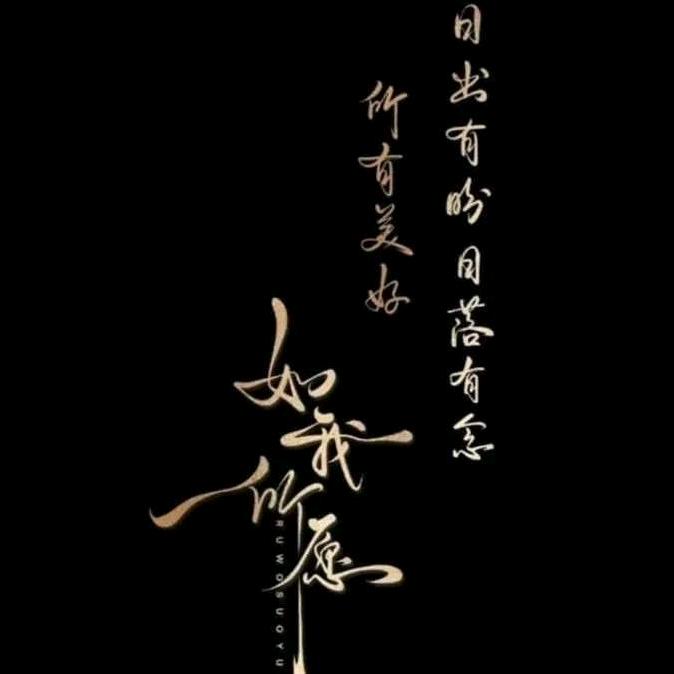 日出有盼日落有念
所有美好
如我所愿
RUWOSUOYU